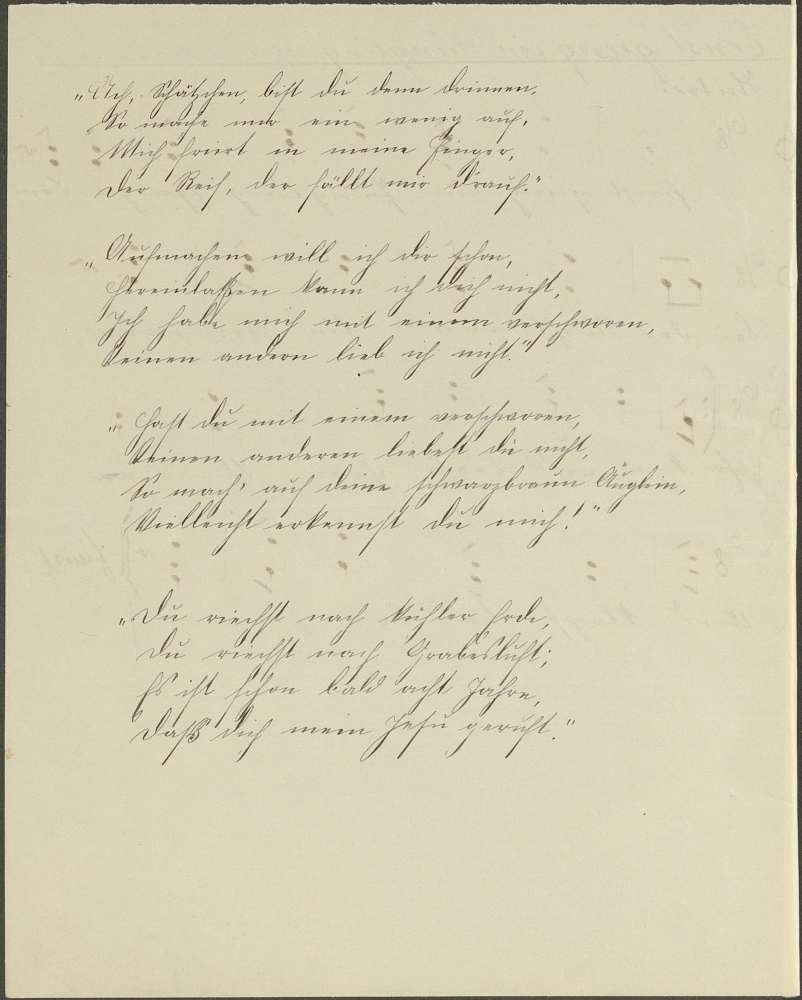 „Ach, Schätzchen, bist du denn drinnen,
So mache mir ein wenig auf,
Mich friert in meine Finger,
Der Reif, der fällt mir drauf."
„Aufmachen will ich dir schon,
Hereinlaßen kann ich dich nicht,
Ich habe mich mit einem verschworen,
Keinen andern lieb ich nicht."
„Hast du mit einem verschworen,
Keinen anderen liebest du nicht,
So mach' auf deine schwarzbraun Äuglein,
Vielleicht erkennst du mich!"
„Du riechst nach kühler Erde,
Du riechst nach Grabesluft;
Es ist schon bald acht Jahre,
Daß dich mein Jesu geruft."